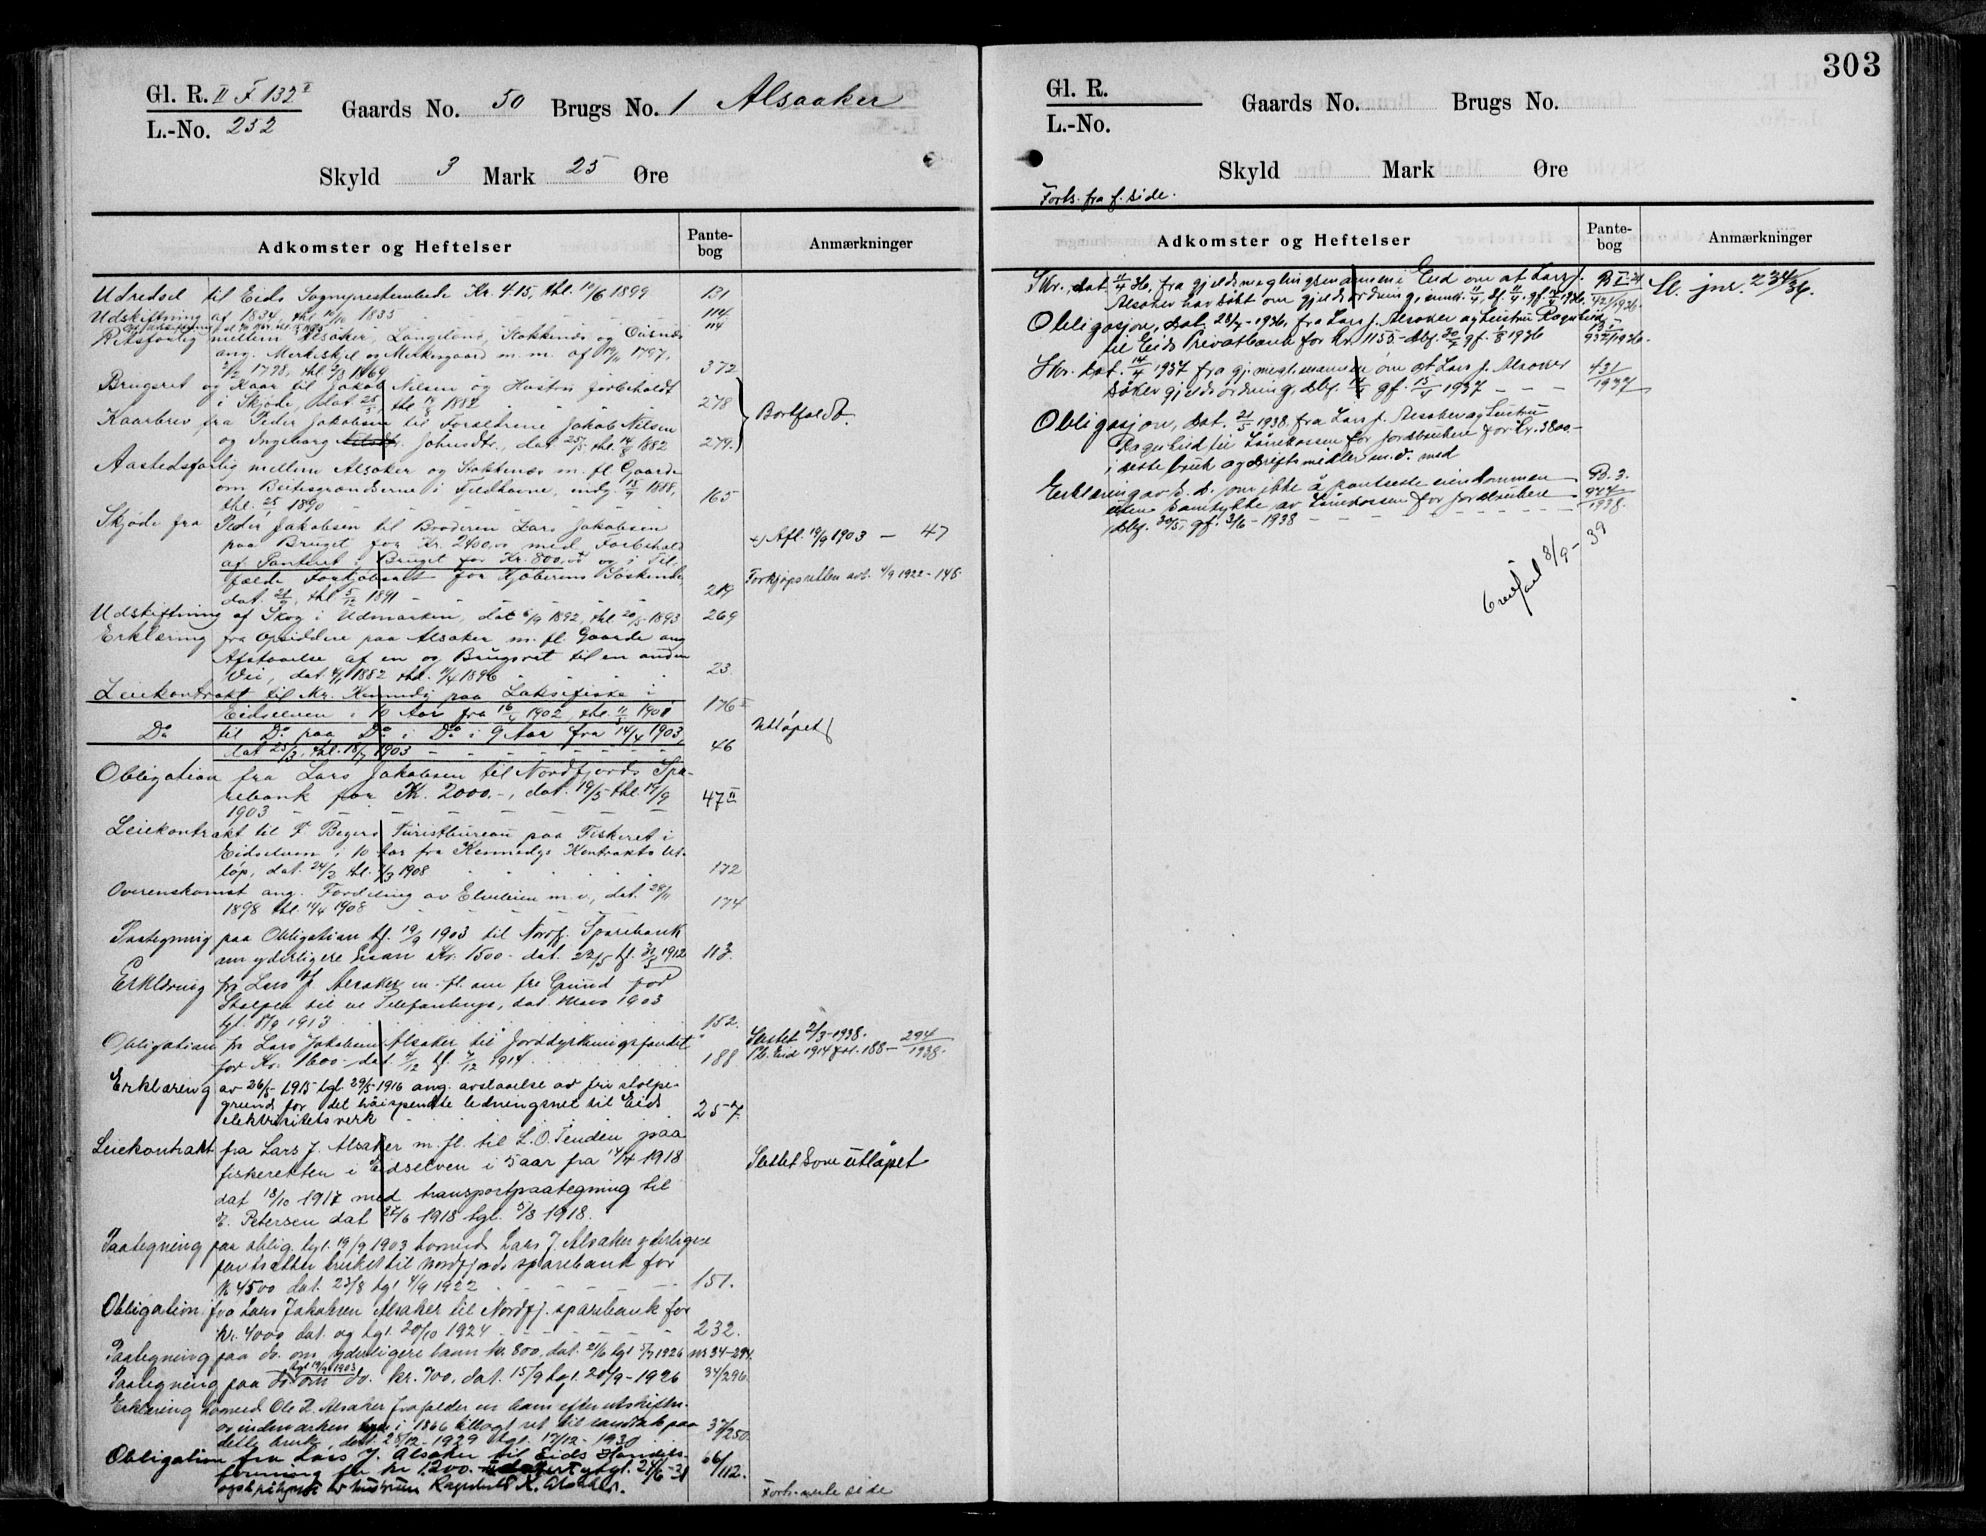 Gl. R. II F 132 I
L.-No. 252
Gaards No. 50 Brugs No. 1 Alsaaker
Skyld 3 Mark 25 Øre
Adkomster og Heftelser
Pante-
bog
Anmærkninger
Udredsel til Eids Sognepræstembede Kr. 4.15, thl. 10/6 1899 131
Udskiftning af 1834, thl 1835 - - - 114
Retsforlig mellem Alsaker, Langeland, Stokkenæs og Ousnæs 114
ang. Merkeskjel og Merkesgaard m. m. af 1797,
1798, thl 1869 372
Brugsret og Kaar til Jakob Nilsen og Hustru forbeholdt
i Skjøde, dat. 25/5, thl 14/8 1882 278
Bortfaldt
Kaarbrev fra Peder Jakobsen til Forældrene Jakob Nilsen
og Ingeborg Johnsdtr, dat 25/5 thl 14/8 1882 279.
Aastedsforlig mellem Alsaker og Stokkenæs m. fl. Gaarde
om Beitesgrændserne i Fjeldhavne, indg. 18/9 1888,
thl. 25/ 1890 165
Skjøde fra Peder Jakobsen til Broderen Lars Jakobsen
paa Bruget for Kr. 2400,00 med Forbehold
x) Afl. 19/9 1903 — 47
af Panteret i Bruget for Kr. 800,00 og i Til-
fælde Forkjøbsret for Kjøberens Søskende
Forkjøpsretten avl. 4/9 1922 - 145
dat. 21/9, thl 5/12 1891 219
Udskiftning af Skog i Udmarken, dat 6/9 1892, thl 20/5 1893 269
Erklæring fra Opsiddere paa Alsaker m. fl. Gaarde ang
Afstaaelse af en og Brugsret til en anden
Vei, dat. 1882 thl. 11/4 1896 23
Leiekontrakt til Mr. Kennedy paa Laksefiske i
Eidselven i 10 Aar fra 16/4 1902, thl. 1901 176 I
Do til Do paa Do i Do i 9 Aar fra 14/4 1903,
Utløpet
dat 25/3, thl. 18/7 1903 46
Obligation fra Lars Jakobsen til Nordfjords Spa-
rebank for Kr. 2000.-, dat. 19/5 thl. 19/9
1903 47 II
Leiekontrakt til F. Beyers Turistbureau paa Fiskeret i
Eidselven i 10 Aar fra Kennedys Kontrakts Ut-
løp, dat. 24/3 thl. 1908 172
Overenskomst ang. Fordeling av Elveleien m. v., dat. 28/11
1898 thl. 11/4 1908 174
Paategning paa Obligation tl. 19/9 1903 til Nordfj. Sparebank
om yderligere Laan Kr. 1500.- dat. 22/5 tl. 31/5 1912 113.
Erklæring fra Lars J. Alsaker m. fl. om fri Grund for
Stolper til en Telefonlinje, dat. Mars 1903
tgl. 1913 152.
Obligation fra Lars Jakobsen Alsaker til Jorddyrkningsfondet
Slettet 2/3-1938.
for Kr. 1600 - dat 4/12 tl. 7/12 1914 188
Pb. Eid 1914 fol. 188 - 294/1938.
Erklæring av 26/8 1915 tgl. 29/5 1916 ang. avstaaelse av fri stolpe-
grund for det høispendte ledningsnet til Eids
elektricitetsverk 257.
Leiekontrakt fra Lars J. Alsaker m. fl. til L. O. Tenden paa
fiskeretten i Eidselven i 5 aar fra 14/4 1918
Slettet som utløpet
dat 18/10 1917 med transportpaategning til
E. Petersen dat 27/6 1918 tgl. 5/8 1918.
Paategning paa oblig. tgl. 19/9 1903 hvorved Lars J. Alsaker yderligere
pantsetter bruket til Nordfjords sparebank for
kr 4500 dat. 23/8 tgl 4/9 1922 151.
Obligation fra Lars Jakobsen Alsaker til Nordfj. sparebank for
kr. 4000 dat. og tgl. 20/10 1924 232.
Paategning paa do. om yderligere laan kr. 800, dat. 21/6 tgl 5/7 1926 nr 34-294.
tgl 19/9 1903
Paategning paa do om do. kr. 700, dat. 15/9 tgl. 20/9-1926 34/296.
Erklæring hvorved Ole L. Alsaker frafalder en ham efter utskiftn.
av indmarken i 1866 tillagt ret til sandtak paa 37/250
dette bruk, dat. 28/12-1929 tgl. 17/12-1930
Obligation fra Lars J. Alsaker til Eids Handels-
forening for kr 1200.- tgl. 24/6-31 66/112.
Ragnhild K. Alsaker.
Forts. neste side
303
Gl. R.
L.-No.
Gaards No. Brugs No.
Skyld Mark Øre
Forts. fra f. side.
Adkomster og Heftelser
Pante-
bog
Anmærkninger
Skr., dat 11/4 36, fra gjeldsmeglingsmannen i Eid om at Lars J.
Alsaker har søkt om gjeldsordning,
Sl. jnr. 234/36.
Obligasjon, dat. 28/7-1936, fra Lars J. Alsaker og hustru Ragnhild
til Eids Privatbank for kr. 1155 - dbf. 30/7 gf. 1/8 1936 932/1936.
Skr. dat. 14/4 1937 fra gj.megl.mannen om at Lars J. Alsaker 431/1937
søker gjeldsordning, dbf. gf. 15/4 1937 - - -
Obligasjon, dat. 21/5 1938 fra Lars J. Alsaker og hustru
Ragnhild til Lånekassen for jordbrukere for kr. 3800.-
i dette bruk og driftsmidler m. v. med
Erklæring av s. d. om ikke å pantsette eiendommen B. 3.
uten samtykke av Lånekassen for jordbrukere 944/1938.
dbf. 30/5, gf. 3/6-1938
8/9-39